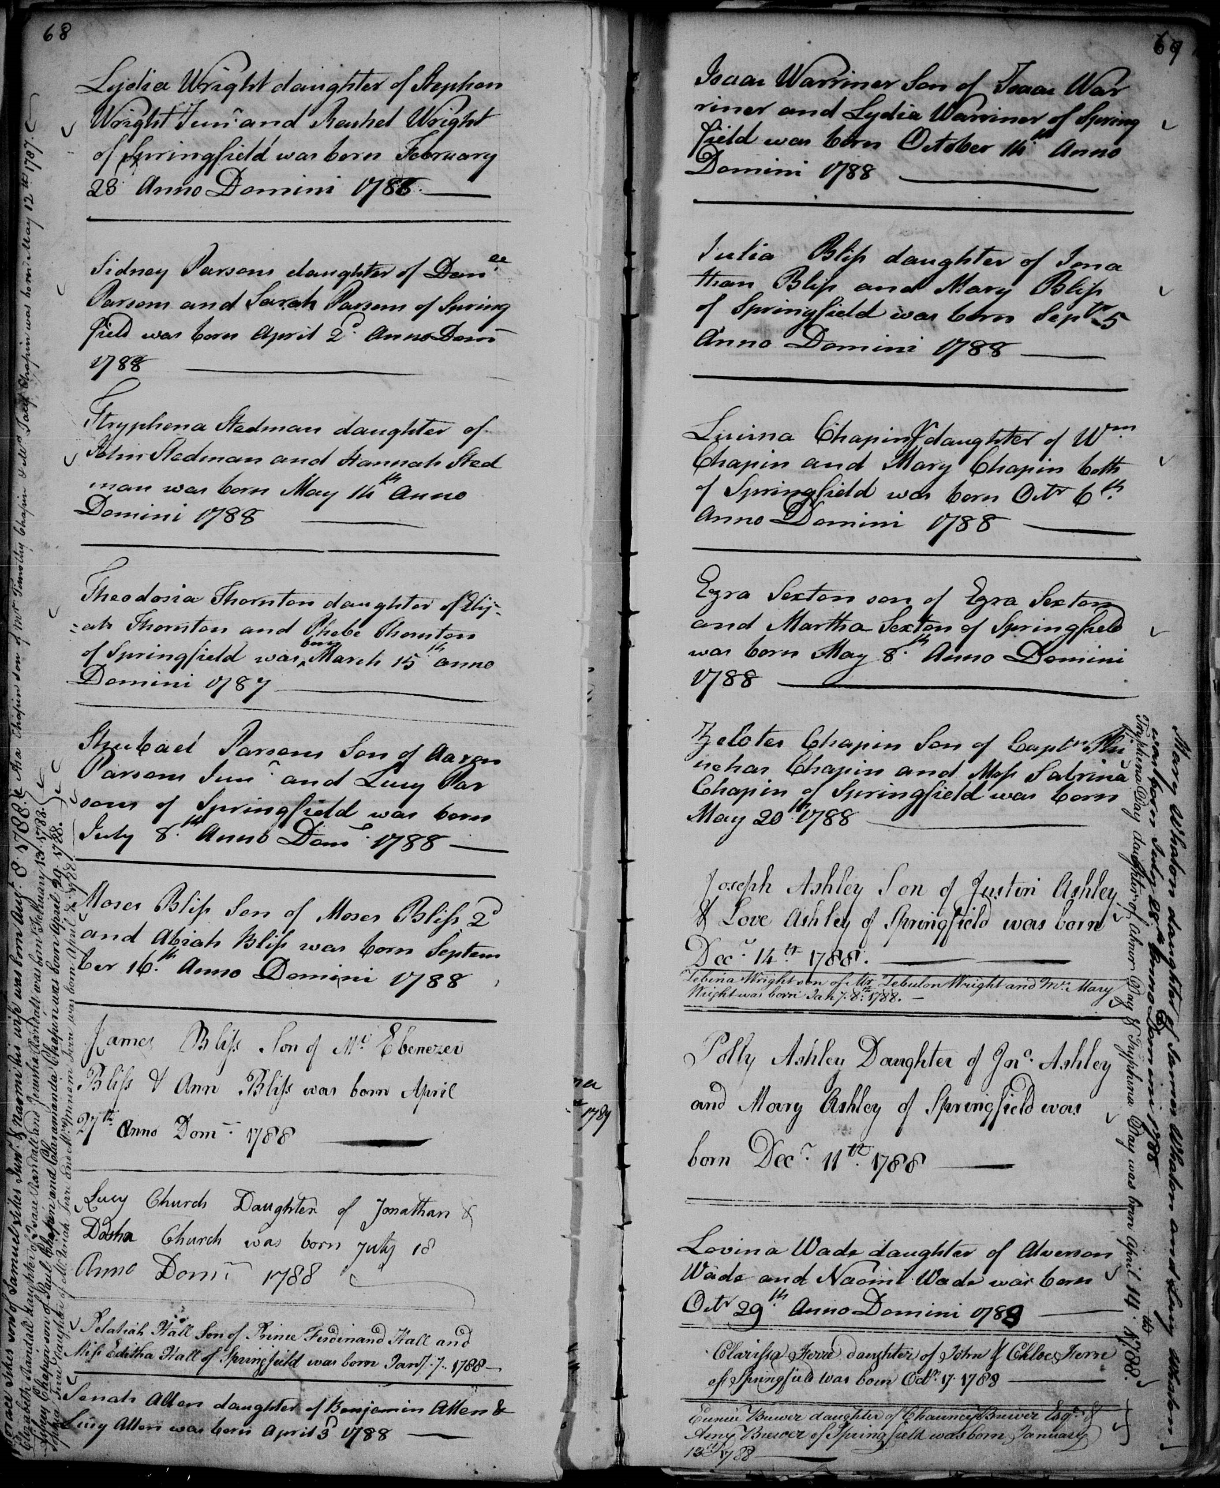 68
Lydia Wright daughter of Stephen
Wright Junr. and Rachel Wright
of Springfield was born February
28 Anno Domini 1788.
Sidney Parsons daughter of
Parsons and Sarah Parsons of Spring
field was born April 2d. Anno Dom
1788
Tryphena Stedman daughter of
John Stedman and Hannah Sted
man was born May 14th Anno
Domini 1788
Theodosia Thornton daughter of Elij-
=ah Thornton and Phebe Thornton
of Springfield was born March 15th anno
Domini 1787
Shubael Parsons Son of Aaron
Parsons Junr. and Lucy Par
sons of Springfield was born
July 8th Anno Dom. 1788
Moses Bliss Son of Moses Bliss 2d
and Abiah Bliss was born Septem
ber 16th. Anno Domini 1788
James Bliss Son of Mr Ebenezer
Bliss & Ann Bliss was born April
27th Anno Dom 1788
Lucy Church Daughter of Jonathan &
Church was born July 18
Anno Domi 1788
Pelatiah Hall Son of Prince Ferdinand Hall and
Miss Editha Hall of Springfield was born Jany. 7. 1788
Senah Allen daughter of Benjamin Allen &
Lucy Allen was born April 3d 1788
Horace Sikes son of Samuel Sikes Junr. & Naomi his wife was born Augt. 8. 1788
Chapin son of Mr Timothy Chapin & Mrs Chapin was born May 12th 1787
Elizabeth Randall daughter of Randall and Jerusha Randall was born February 13, 1788
Chapin son of Paul Chapin and Claramanda Chapin was born April 29. 1788.
daughter of was born April 1788.
69
Isaac Warriner Son of Isaac War
riner and Lydia Warriner of Spring
field was born October 14th Anno
Domini 1788
Julia Bliss daughter of Jona
than Bliss and Mary Bliss
of Springfield was born Septr 5
Anno Domini 1788
Lucina Chapin daughter of Wm
Chapin and Mary Chapin both
of Springfield was born Octr 6th.
Anno Domini 1788
Ezra Sexton son of Ezra Sexton
and Martha Sexton of Springfield
was born May 8th Anno Domini
1788
Zelotes Chapin Son of Captn Phi
nehas Chapin and Mrs Sabrina
Chapin of Springfield was born
May 20th 1788
Joseph Ashley Son of Justin Ashley
& Love Ashley of Springfield was born
Decr. 14th 1788.
Zebina Wright son of Mr Zebulon Wright and Mrs Mary
Wright was born Jany. 8th. 1788.
Polly Ashley Daughter of Jno. Ashley
and Mary Ashley of Springfield was
born Decr. 11th. 1788
Lovina Wade daughter of Alverson
Wade and Naomi Wade was born
Octr 29th Anno Domini 1788
Clarissa Ferre daughter of John & Chloe Ferre
of Springfield was born Octr. 17. 1788
Eunice Brewer daughter of Chauncey Brewer Esqr. &
Amy Brewer of Springfield was born January
1788
Tryphena Day daughter of Day & Tryphena Day was born April 14th 1788.
Mary Whaton daughter of James Whaton and Lucy Whaton
was born July 28th Anno Domini 1788
1789